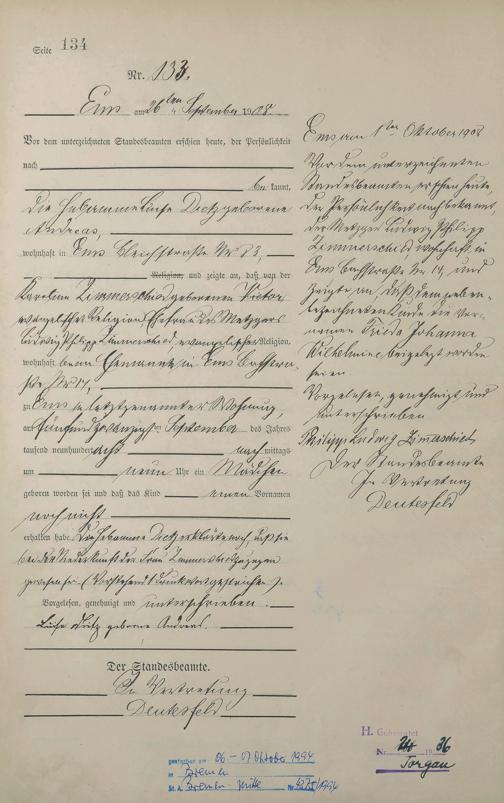 Seite 134
Nr. 133.
Ems am 26ten September 1908.
Vor dem unterzeichneten Standesbeamten erschien heute, der Persönlichkeit
nach
be kannt,
die Hebamme Luise Dietz geborene
Andreas,
wohnhaft in Ems Bleichstraße Nr 23,
Religion, und zeigte an, daß von der
Karoline Zimmerschied geborenen Victor
evangelischer Religion, Ehefrau des Metzgers
Ludwig Philipp Zimmerschied, evangelischer Religion,
wohnhaft beim Ehemanne in Ems Bachstra-
ße Nr 14,
zu Ems in letztgenannter Wohnung,
am fünfundzwanzigsten September des Jahres
tausend neunhundert acht nachmittags
um neun Uhr ein Mädchen
geboren worden sei und daß das Kind einen Vornamen
noch nicht
erhalten habe. Die Hebamme Dietz erklärte noch, daß sie
bei der Niederkunft der Frau Zimmerschied zugegen
gewesen sei. (Vorstehend 1 Druckwort gestrichen).
Vorgelesen, genehmigt und unterschrieben.
Luise Dietz geborne Andreas.
Der Standesbeamte.
In Vertretung
Deutesfeld
Ems am 1ten Oktober 1908
Vor dem unterzeichneten
Standesbeamten erschien heute,
der Persönlichkeit nach bekannt,
der Metzger Ludwig Philipp
Zimmerschied wohnhaft in
Ems Bachstraße Nr. 14, und
zeigte an, daß dem neben-
bezeichneten Kinde die Vor-
namen Frieda Johanna
Wilhelmine beigelegt worden
seien.
Vorgelesen, genehmigt und
unterschrieben
Philipp Ludwig Zimmerschied
Der Standesbeamte
In Vertretung
Deutesfeld
gestorben am 06.-07. Oktober 1994
in Bremen
St. A. Bremen-Mitte Nr. 4275/1994
H. Geheiratet
Nr. 1936
Torgau